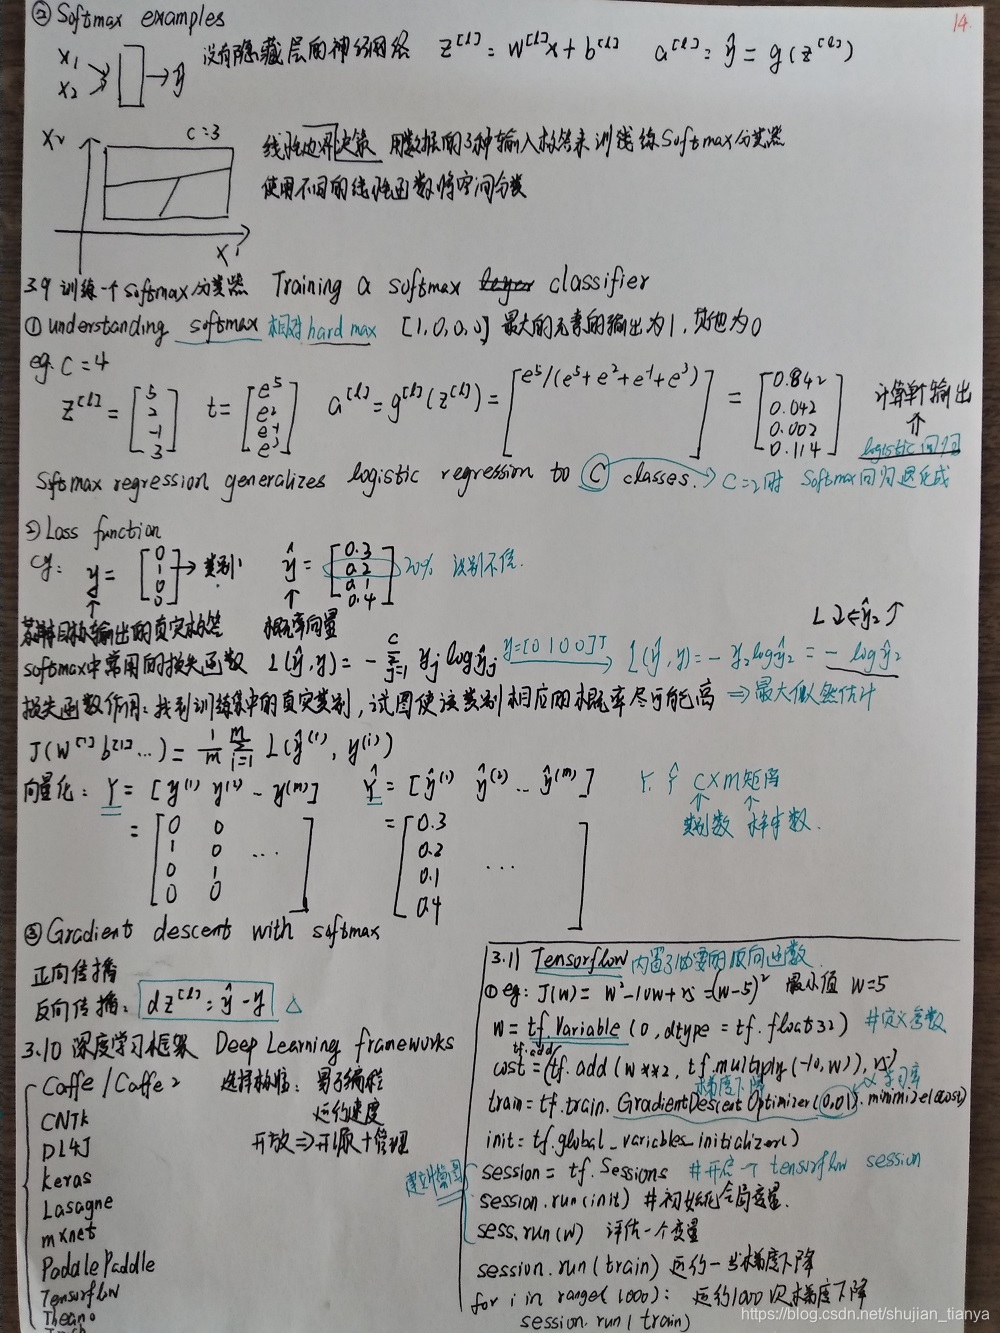 ② Softmax examples
14.
x₁
x₂
ŷ
没有隐藏层的神经网络 z^[l] = w^[l]x + b^[l] a^[l] = ŷ = g(z^[l])
x₂
c=3
x₁
线性边界决策 用数据的3种输入标签来训练Softmax分类器
使用不同的线性函数将空间分类
3.9 训练一个softmax分类器 Training a softmax classifier
① understanding softmax 相对 hard max [1,0,0,0] 最大的元素的输出为1,其他为0
eg. C=4
z^[l] = [5 2 -1 3] t = [e^5 e^2 e^-1 e^3] a^[l] = g^[l](z^[l]) = [e^5/(e^5+e^2+e^-1+e^3)] = [0.842 0.042 0.002 0.114] 计算单个输出
⇑
logistic回归
Softmax regression generalizes logistic regression to C classes. → C=2时 Softmax回归退化成
② Loss function
eg: y = [0 1 0 0] → 类别1 ŷ = [0.3 0.2 0.1 0.4] 20% 识别不佳.
目标输出的真实标签 概率向量
L↓ ← ŷ₂↑
softmax中常用的损失函数 L(ŷ,y) = - Σ_{j=1}^{c} y_j log ŷ_j y=[0 1 0 0]T L(ŷ,y) = - y₂ log ŷ₂ = - log ŷ₂
损失函数作用:找到训练集中的真实类别,试图使该类别相应的概率尽可能高 ⇒ 最大似然估计
J(w^[1] b^[1]...) = 1/m Σ_{i=1}^{m} L(ŷ^(i), y^(i))
向量化: Y = [y^(1) y^(2) - y^(m)] Ŷ = [ŷ^(1) ŷ^(2) ... ŷ^(m)] Y. Ŷ C×m矩阵
类别数 样本数.
= [0 0 1 0 ... 0 1 0 0] = [0.3 0.2 0.1 0.4 ...]
③ Gradient descent with softmax
正向传播
反向传播: dz^[l] = ŷ - y △
3.10 深度学习框架 Deep Learning frameworks
Caffe / Caffe2 选择标准: 易于编程
CNTK 运行速度
DL4J 开放 ⇒ 开源+管理
keras
Lasagne
mxnet
PaddlePaddle
Tensorflow
Theano
3.11 Tensorflow 内置了必要的反向函数
① eg: J(w) = w²-10w+25 = (w-5)² 最小值 w=5
w = tf.Variable (0, dtype = tf.float32) #定义参数
tf.add(
cost = (tf.add (w**2, tf.multiply (-10, w)), 25)
梯度下降 α 学习率
train = tf.train.GradientDescentOptimizer(0.01).minimize(cost)
init = tf.global_variables_initializer()
session = tf.Sessions #开启一个 tensorflow session
建计算图
session.run(init) #初始化全局变量.
sess.run(w) 评估一个变量
session.run(train) 运行一步梯度下降
for i in range(1000): 运行1000次梯度下降
session.run(train)
https://blog.csdn.net/shujian_tianya